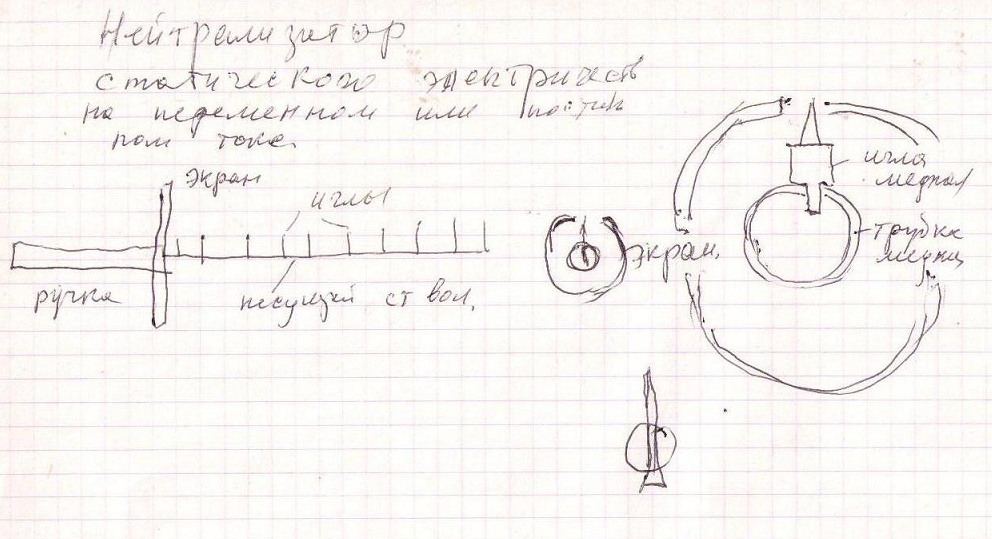 Нейтрализатор
статического электричеств
на переменном или постян
ном токе.
экран
иглы
ручка
несущий ствол.
экран.
игла
медная
трубка
медная